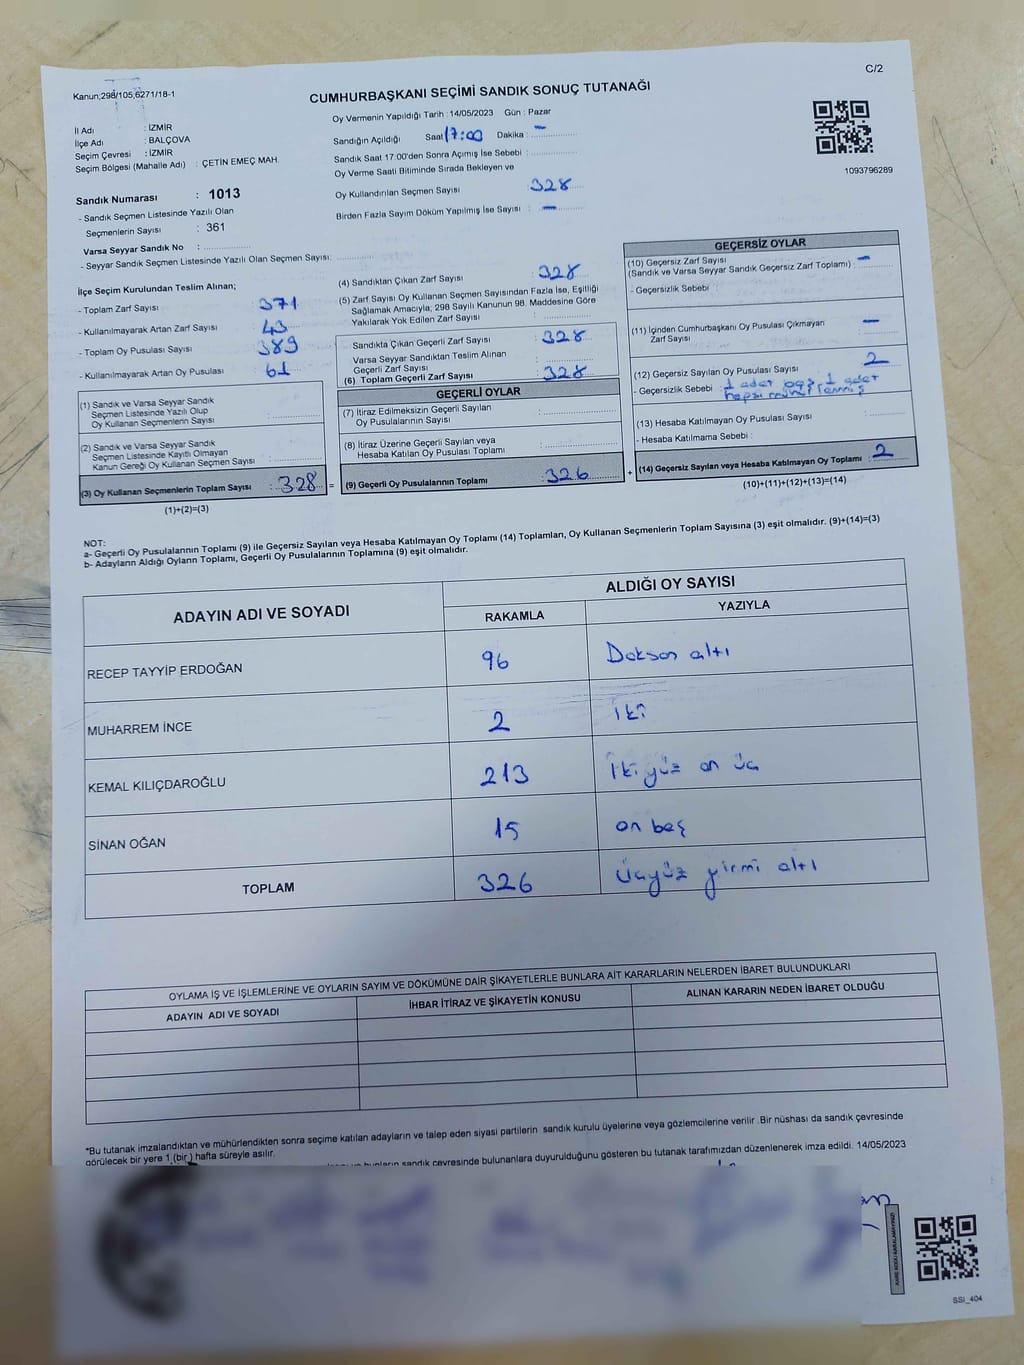 C/2
Kanun;298/105,6271/18-1
CUMHURBAŞKANI SEÇİMİ SANDIK SONUÇ TUTANAĞI
Oy Vermenin Yapıldığı Tarih : 14/05/2023 Gün : Pazar
İl Adı : İZMİR
İlçe Adı : BALÇOVA
Seçim Çevresi : İZMİR
Seçim Bölgesi (Mahalle Adı) : ÇETİN EMEÇ MAH.
Sandık Numarası : 1013
- Sandık Seçmen Listesinde Yazılı Olan
Seçmenlerin Sayısı : 361
Varsa Seyyar Sandık No :
- Seyyar Sandık Seçmen Listesinde Yazılı Olan Seçmen Sayısı:
Sandığın Açıldığı Saat 17:00 Dakika : –
Sandık Saat 17.00'den Sonra Açımış İse Sebebi :
Oy Verme Saati Bitiminde Sırada Bekleyen ve
Oy Kullandırılan Seçmen Sayısı 328
Birden Fazla Sayım Döküm Yapılmış İse Sayısı : –
1093796289
İlçe Seçim Kurulundan Teslim Alınan;
- Toplam Zarf Sayısı : 371
- Kullanılmayarak Artan Zarf Sayısı : 43
- Toplam Oy Pusulası Sayısı : 389
- Kullanılmayarak Artan Oy Pusulası : 61
(1) Sandık ve Varsa Seyyar Sandık
Seçmen Listesinde Yazılı Olup
Oy Kullanan Seçmenlerin Sayısı :
(2) Sandık ve Varsa Seyyar Sandık
Seçmen Listesinde Kayıtlı Olmayan
Kanun Gereği Oy Kullanan Seçmen Sayısı :
(3) Oy Kullanan Seçmenlerin Toplam Sayısı : 328 =
(1)+(2)=(3)
(4) Sandıktan Çıkan Zarf Sayısı : 328
(5) Zarf Sayısı Oy Kullanan Seçmen Sayısından Fazla İse, Eşitliği
Sağlamak Amacıyla; 298 Sayılı Kanunun 98. Maddesine Göre
Yakılarak Yok Edilen Zarf Sayısı :
Sandıkta Çıkan Geçerli Zarf Sayısı : 328
Varsa Seyyar Sandıktan Teslim Alınan
Geçerli Zarf Sayısı :
(6) Toplam Geçerli Zarf Sayısı : 328
GEÇERLİ OYLAR
(7) İtiraz Edilmeksizin Geçerli Sayılan
Oy Pusulalarının Sayısı :
(8) İtiraz Üzerine Geçerli Sayılan veya
Hesaba Katılan Oy Pusulası Toplamı :
(9) Geçerli Oy Pusulalarının Toplamı : 326 +
GEÇERSİZ OYLAR
(10) Geçersiz Zarf Sayısı
(Sandık ve Varsa Seyyar Sandık Geçersiz Zarf Toplamı) : –
- Geçersizlik Sebebi :
(11) İçinden Cumhurbaşkanı Oy Pusulası Çıkmayan
Zarf Sayısı : –
(12) Geçersiz Sayılan Oy Pusulası Sayısı : 2
- Geçersizlik Sebebi : 1 adet boş, 1 adet
hepsi mühürlenmiş
(13) Hesaba Katılmayan Oy Pusulası Sayısı :
- Hesaba Katılmama Sebebi :
(14) Geçersiz Sayılan veya Hesaba Katılmayan Oy Toplamı : 2
(10)+(11)+(12)+(13)=(14)
NOT:
a- Geçerli Oy Pusulalarının Toplamı (9) ile Geçersiz Sayılan veya Hesaba Katılmayan Oy Toplamı (14) Toplamları, Oy Kullanan Seçmenlerin Toplam Sayısına (3) eşit olmalıdır. (9)+(14)=(3)
b- Adayların Aldığı Oyların Toplamı, Geçerli Oy Pusulalarının Toplamına (9) eşit olmalıdır.
ADAYIN ADI VE SOYADI ALDIĞI OY SAYISI
RAKAMLA YAZIYLA
RECEP TAYYİP ERDOĞAN 96 Doksan altı
MUHARREM İNCE 2 iki
KEMAL KILIÇDAROĞLU 213 iki yüz on üç
SİNAN OĞAN 15 on beş
TOPLAM 326 üçyüz yirmi altı
OYLAMA İŞ VE İŞLEMLERİNE VE OYLARIN SAYIM VE DÖKÜMÜNE DAİR ŞİKAYETLERLE BUNLARA AİT KARARLARIN NELERDEN İBARET BULUNDUKLARI
ADAYIN ADI VE SOYADI İHBAR İTİRAZ VE ŞİKAYETİN KONUSU ALINAN KARARIN NEDEN İBARET OLDUĞU
*Bu tutanak imzalandıktan ve mühürlendikten sonra seçime katılan adayların ve talep eden siyasi partilerin sandık kurulu üyelerine veya gözlemcilerine verilir .Bir nüshası da sandık çevresinde
görülecek bir yere 1 (bir ) hafta süreyle asılır.
bunların sandık çevresinde bulunanlara duyurulduğunu gösteren bu tutanak tarafımızdan düzenlenerek imza edildi. 14/05/2023
SSI_404